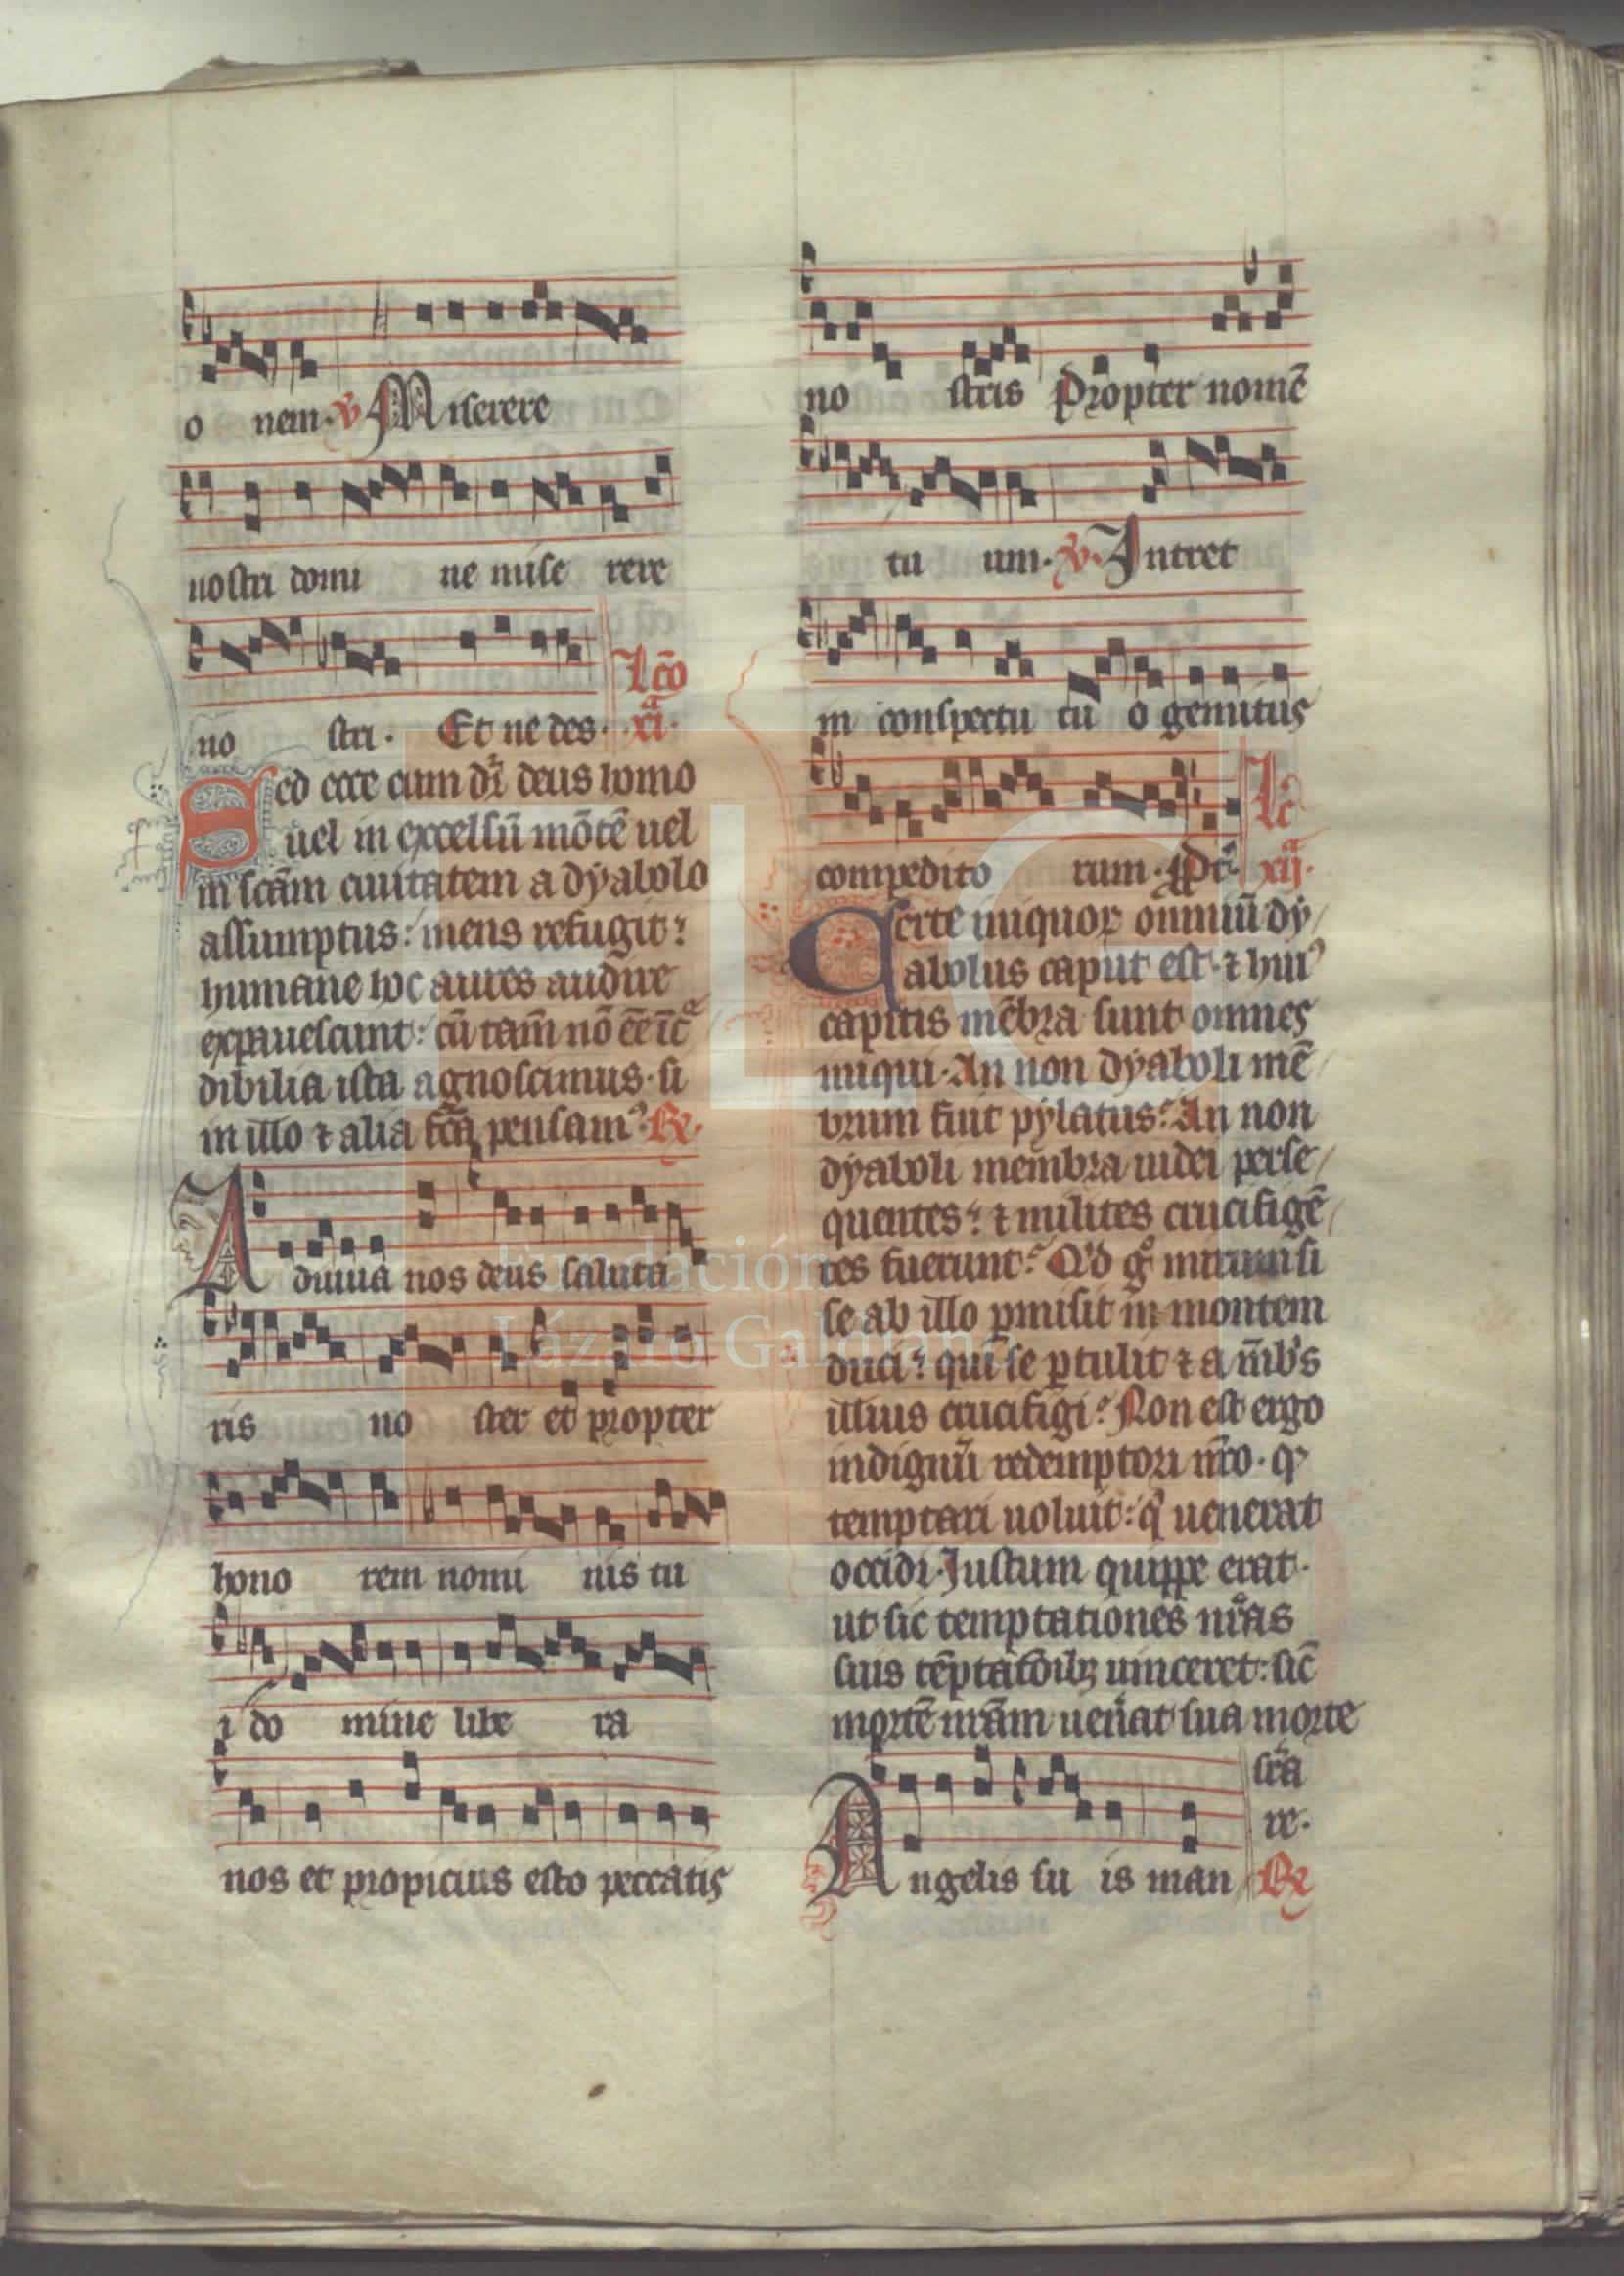 o nem. ℣ Miserere
nostri domi ne mise rere
no stri. Et ne des. Lc̄o
xi.ª
Sed ecce cum dr̄ deus homo
uel in excelsū mōtē uel
in sc̄am ciuitatem a dyabolo
assumptus: mens refugit:
humane hoc aures audire
expauescunt: cū tam̄ nō ēē īc
dibilia ista agnoscimus. si
in illo ⁊ alia fc̄a pensam⁹. ℟.
Adiuua nos deus saluta
ris no ster et propter
hono rem nomi nis tu
i do mine libe ra
nos et propicius esto peccatis
no stris Propter nomē
tu um. ℣. Intret
in conspectu tu o gemitus
compedito rum. Pt̄. Lc̄
xij.ª
Certe iniquoꝝ omniū dy
abolus caput est. ⁊ hui⁹
capitis mēbra sunt omnes
iniqui. An non dyaboli mē
brum fuit pylatus? An non
dyaboli membra iudei perse
quentes? ⁊ milites crucifigē
tes fuerunt? Qd g° mirum si
se ab illo ꝑmisit in montem
duci? qui se ꝑtulit ⁊ a mb̄s
illius crucifigi? Non est ergo
indignū redemptori nr̄o. qꝫ
temptari uoluit: q̄ uenerat
occidi. Iustum quippe erat.
ut sic temptationes nr̄as
suis tēptatōibꝫ uinceret: sic̄
mortē nr̄am uen̄at sua morte
sr̄a
re.
Angelis su is man ℟
Fundación
Lázaro Galdiano